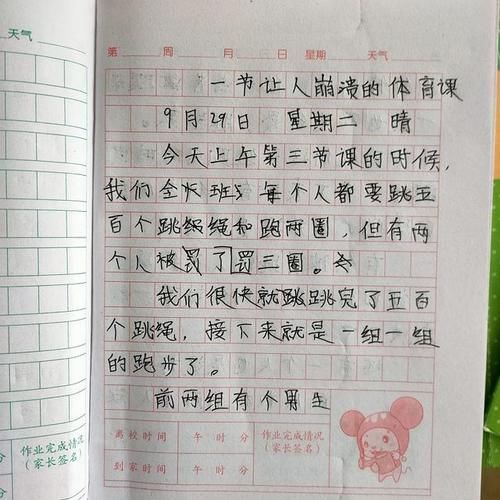 天气
第 周 月 日 星期 天气
一节让人崩溃的体育课
9月29日 星期二 晴
今天上午第三节课的时候,
我们全班每个人都要跳五
百个跳绳和跑两圈,但有两
个人被罚了罚三圈。
我们很快就跳跳完了五百
个跳绳,接下来就是一组一组
的跑步了。
前两组有个男生
离校时间 午 时 分 作业完成情况
(家长签名)
到家时间 午 时 分
作业完成情况
(家长签名)
分
分